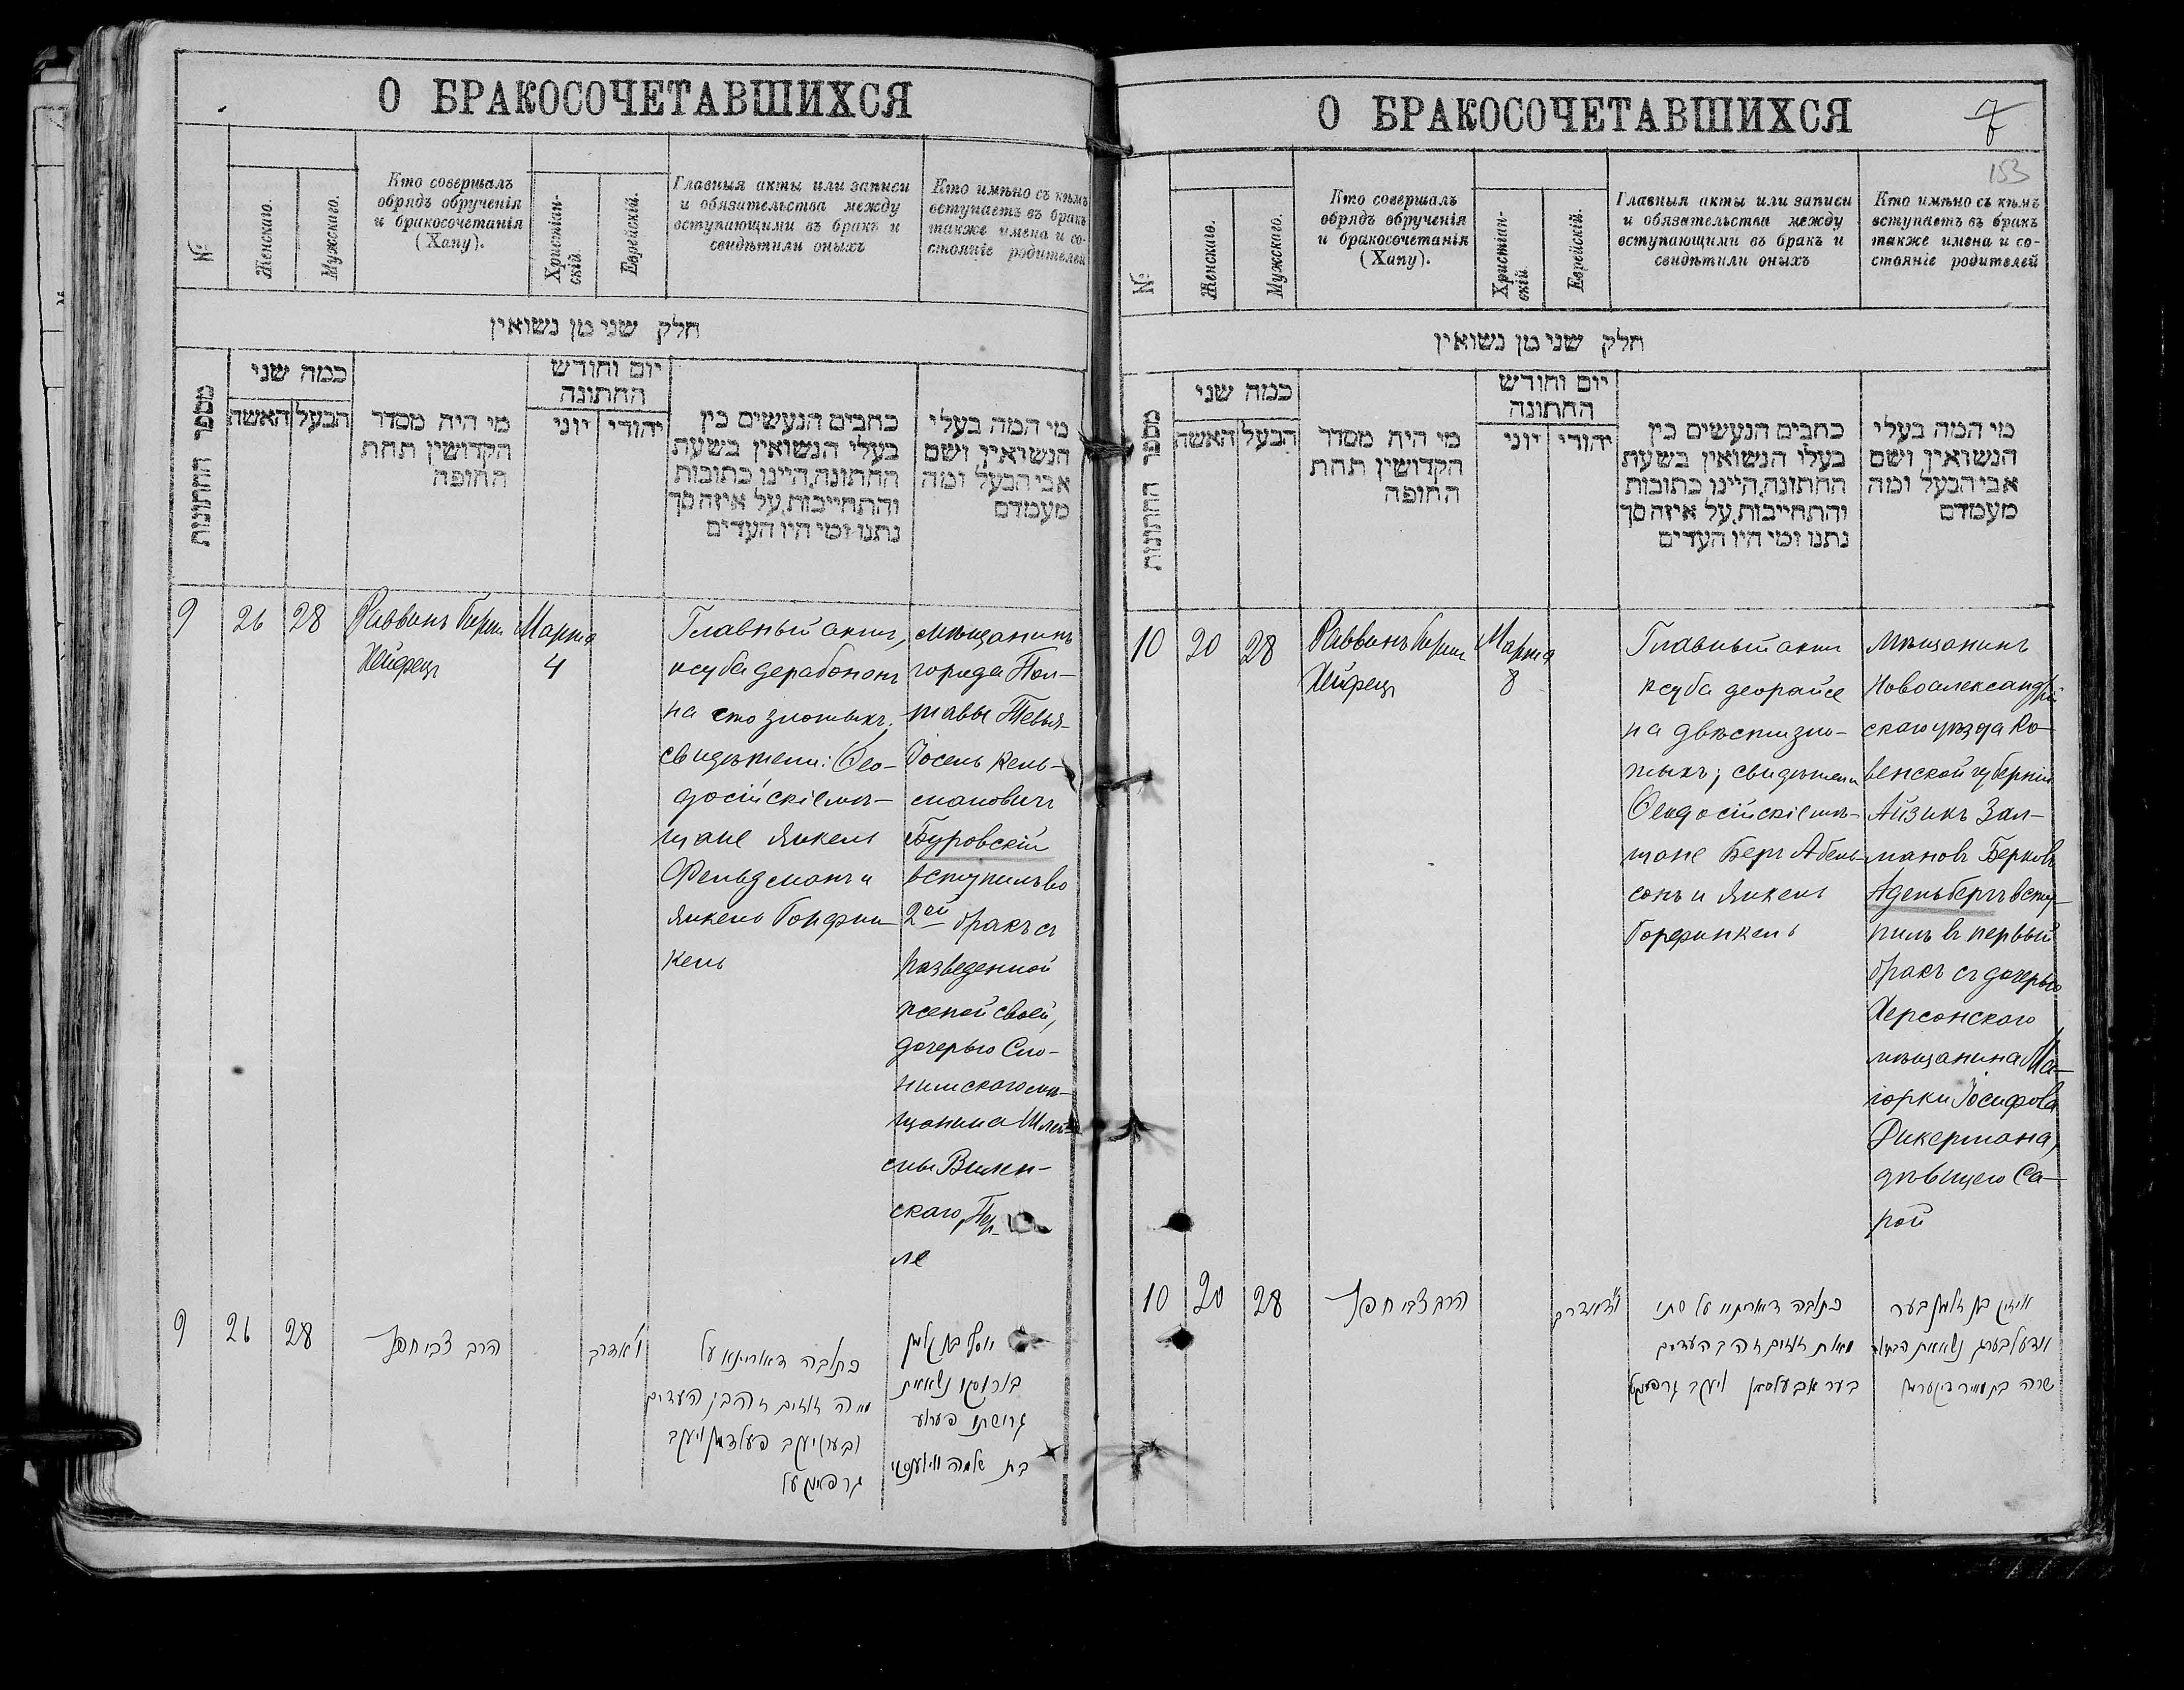 О БРАКОСОЧЕТАВШИХСЯ
№
Женскаго.
Мужскаго.
Кто совершалъ
обрядъ обрученія
и бракосочетанія
(Хапу).
Христіан-
скій.
Еврейскій.
Главныя акты или записи
и обязательства между
вступающими въ бракъ и
свидѣтили оныхъ
Кто имѣно съ кѣмъ
вступаетъ въ бракъ
также имена и со-
стояніе родителей
חלק שני מן נשואין
מספר החתונות
כמה שני
האשה
הבעל
מי היה מסדר
הקדושין תחת
החופה
יום וחודש
החתונה
יוני
יהודי
כתבים הנעשים בין
בעלי הנשואין בשעת
החתונה, היינו כתובות
והתחייבות, על איזה סך
נתנו ומי היו העדים
מי המה בעלי
הנשואין ושם
אבי הבעל ומה
מעמדם
9
26
28
Раввинъ Беръ
Хейфецъ
Марта
4
Главный актъ,
ксуба дерабононъ
на сто злотыхъ;
свидѣтели: Ѳео-
досійскіе мѣ-
щане Янкель
Фельдманъ и
Янкель Горфин-
кель
мѣщанинъ
города Пол-
тавы Тевья-
Іосель Кель-
мановичъ
Буровскій
вступилъ во
2ей бракъ съ
разведенной
женой своей,
дочерью Сло-
нимскаго мѣ-
щанина Шлей-
мы Вилен-
скаго, Пер-
ле
9
26
28
הרב צבי חפץ
ו' אדר ב
כתובה דאוריתא על
מייה זוזים זהב העדים
יעקב פעלדמן ויעקב
יוסף בן קלמן
בורוסקי נשא את
גרושתו פערלע
בת שלמה ווילענסקי
О БРАКОСОЧЕТАВШИХСЯ
7
153
№
Женскаго.
Мужскаго.
Кто совершалъ
обрядъ обрученія
и бракосочетанія
(Хапу).
Христіан-
скій.
Еврейскій.
Главныя акты или записи
и обязательства между
вступающими въ бракъ и
свидѣтили оныхъ
Кто имѣно съ кѣмъ
вступаетъ въ бракъ
также имена и со-
стояніе родителей
חלק שני מן נשואין
מספר החתונות
כמה שני
האשה
הבעל
מי היה מסדר
הקדושין תחת
החופה
יום וחודש
החתונה
יוני
יהודי
כתבים הנעשים בין
בעלי הנשואין בשעת
החתונה, היינו כתובות
והתחייבות, על איזה סך
נתנו ומי היו העדים
מי המה בעלי
הנשואין ושם
אבי הבעל ומה
מעמדם
10
20
28
Раввинъ Беръ
Хейфецъ
Марта
8
Главный актъ
ксуба деорайсе
на двѣсти зло-
тыхъ; свидѣтели
Ѳеодосійскіе мѣ-
щане Беръ Абель-
сонъ и Янкель
Горфинкель
мѣщанинъ
Новоалександров-
скаго уѣзда Ко-
венской губерніи
Айзикъ Зал-
мановъ Берковъ
Адельбергъ всту-
пилъ въ первый
бракъ съ дочерью
Херсонскаго
мѣщанина Ма-
іорки Іосифова
Рикермана,
дѣвицею Са-
рой
10
20
28
הרב צבי חפץ
אדר ב
כתובה דאוריתא על סך
מאות זוזים זהב העדים
בער אבעלסאן ויעקב
אייזיק בן זלמן בער
אדעלבערג נשא את הבתולה
שרה בת מאיר ריקערמן